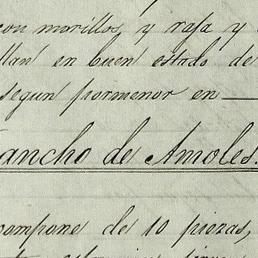 con morillos, y rafa y
llan en buen estado de
segun pormenor en
ancho de Amoles.
compone de 10 piezas,